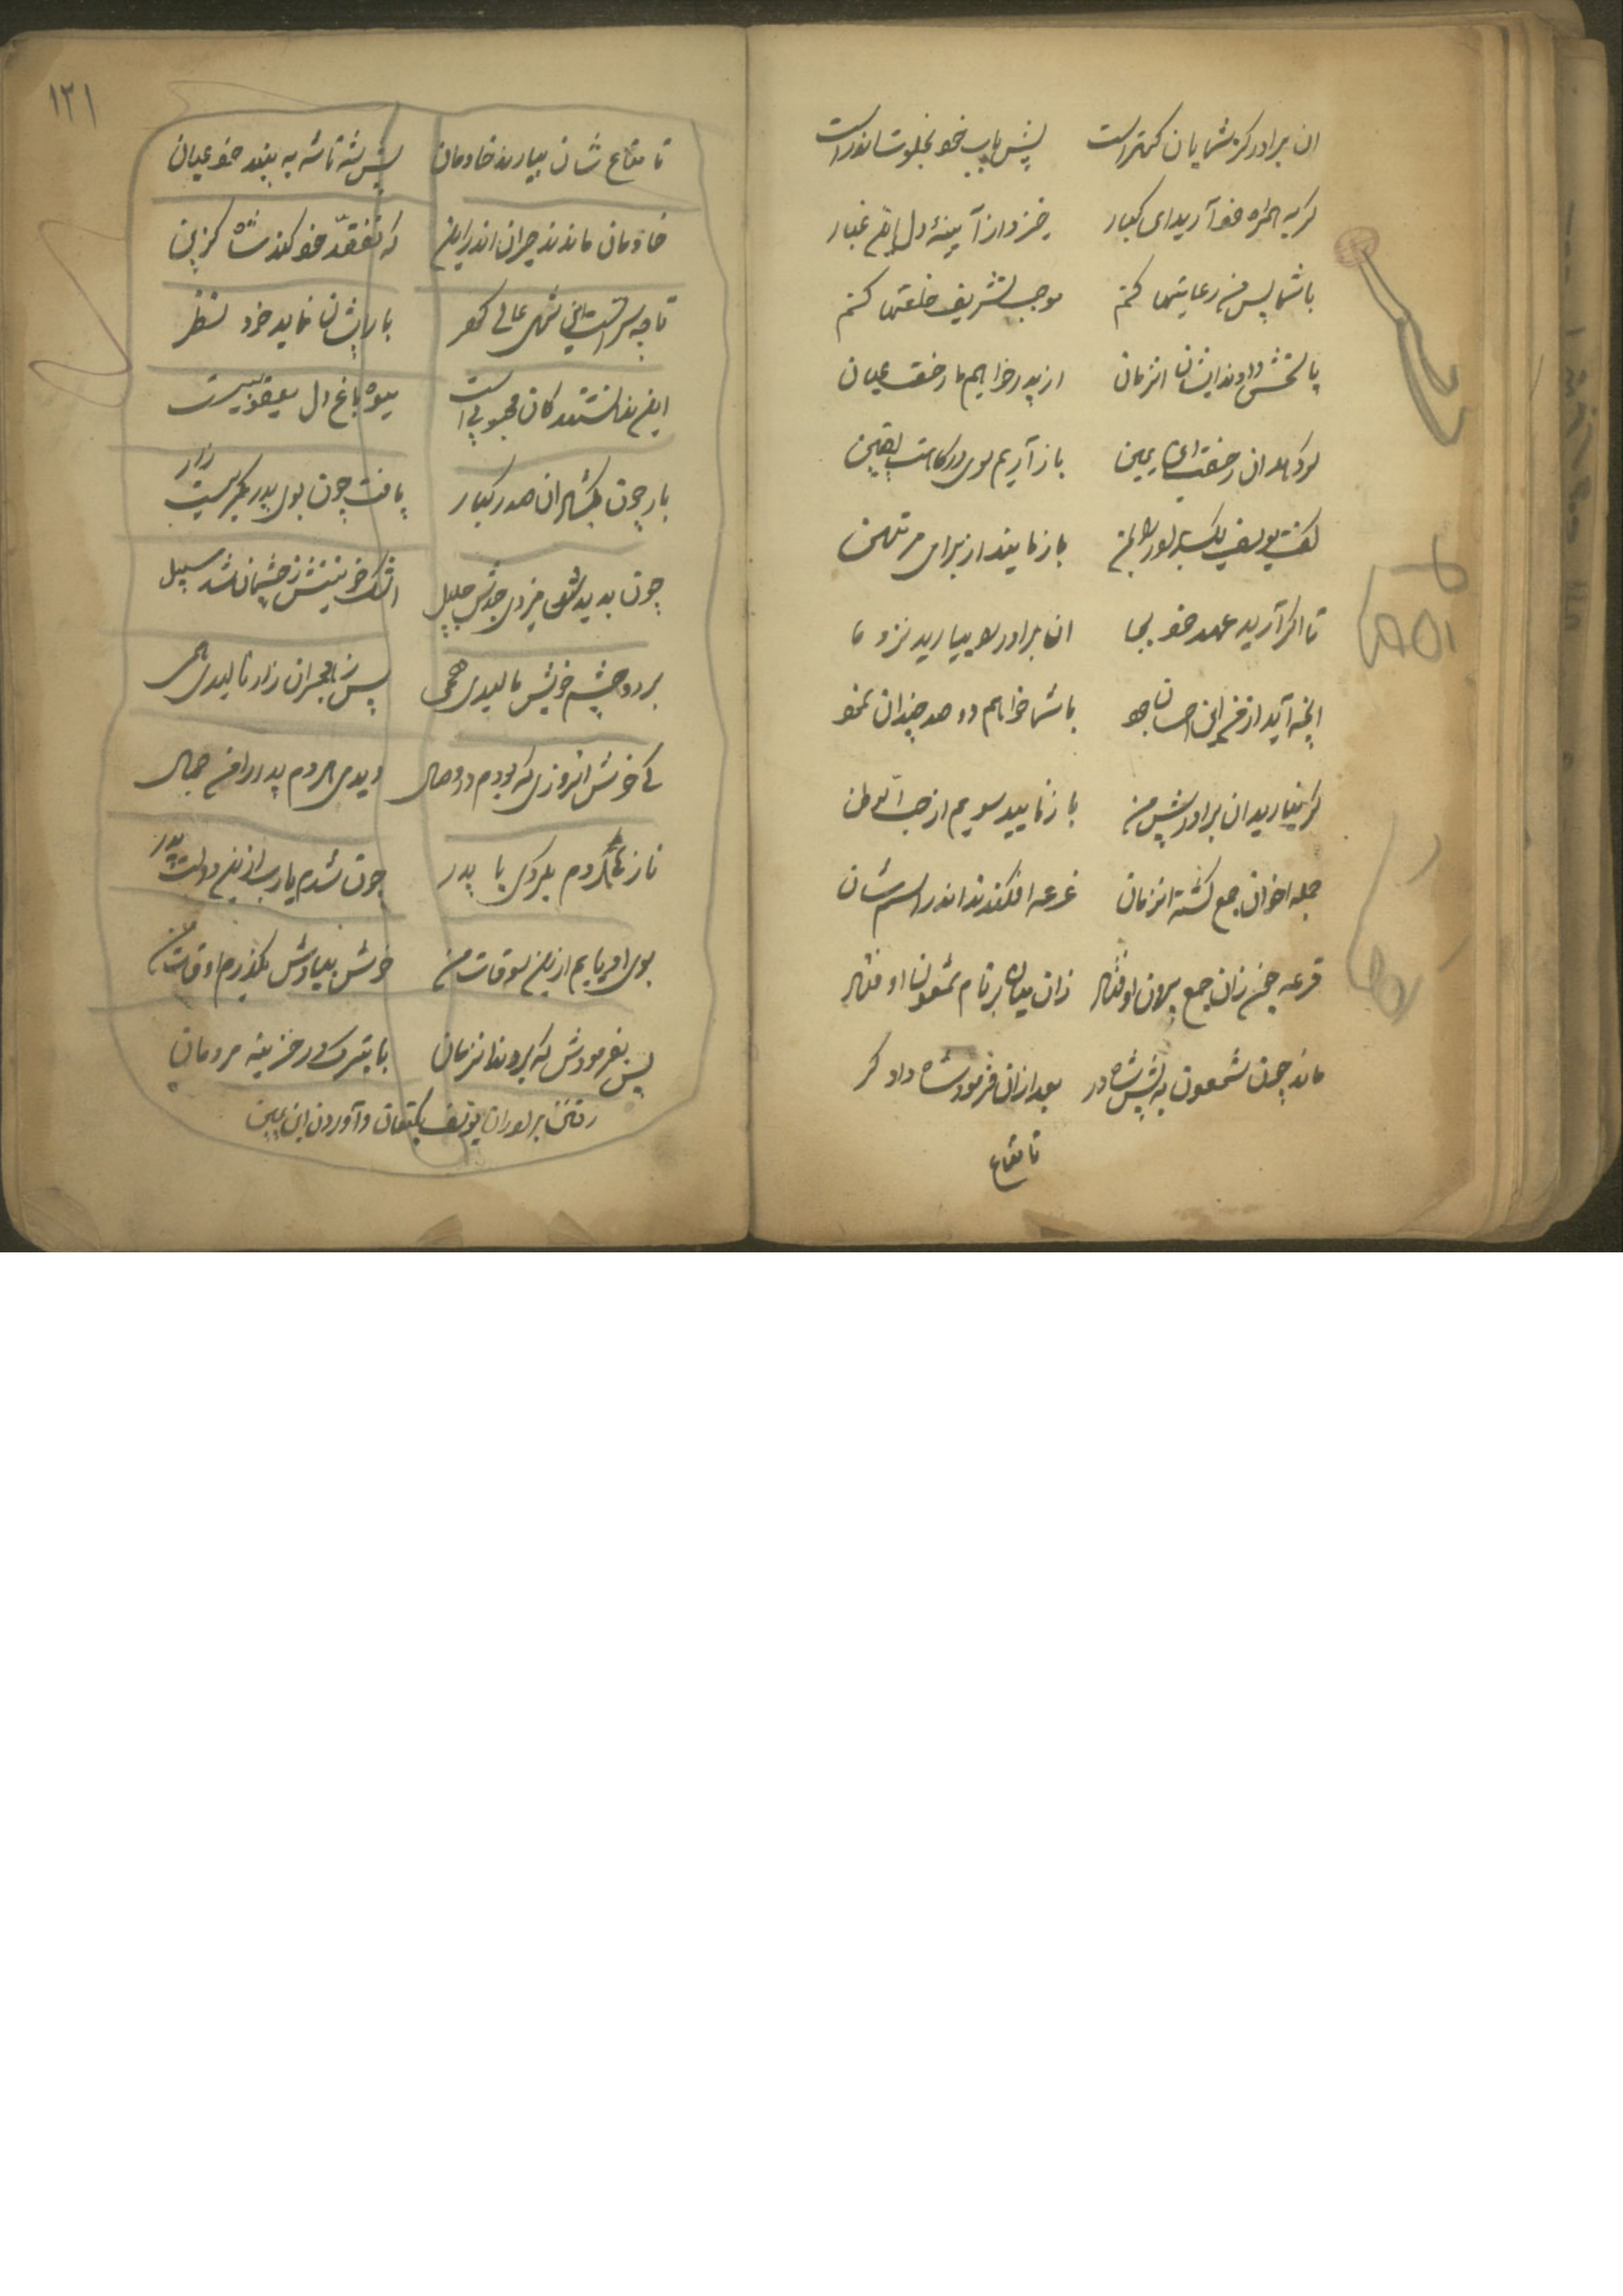 ان برادر کز شمایان کمتر است پیش باب خو بخلوت اندر است
گر به همراه خو آرید ای کبار خیزد از آیینهٔ دل این غبار
با شما پس من رعایتها کنم موجب تشریف خلعتها کنم
پاسخش دادند ایشان انزمان از پدر خواهیم ما رخصت عیان
گر دهد ان رخصت باز آریم سوی درگاهت یقین
گفت یوسف یک برادر باز مانید از برای مرتهن
تا اگر آرید عهد خو بجا ان برادر را بیارید نزد ما
انچه آید از من احسان با شما خواهم دو صد چندان نمو
گر نیارید ان برادر پیش من باز نایید سویم از حب الوطن
جمله اخوان جمع گشته انزمان قرعه افکندند اندر اسم شان
قرعه چون زان جمع بیرون اوفتاد زان میان بر نام شمعون اوفتاد
ماند چون شمعون به پیش شاه در بعد ازان فرمود شاه دادگر
تا متاع
۱۲۱
تا متاع شان بیارند خادمان پیش شه تا شه به بیند خو عیان
خادمان ماندند حیران اندر این که تفقد خو کند شاه گزین
تا چه سر است این شهی عالی گهر بار ایشان نماید خود نظر
این ندانستند کان محبوبی است میوه باغ دل یعقوبیست
بار چون بگشاد ان صدر کبار یافت چون بوی پدر بگریست زار
چون بدیدش جلیل اشک خونینش ز چشمان شد سبیل
بر دو چشم خویش مالیدی همی پس ز هجران زار نالیدی همی
کی خوش انروزی که بودم در وصال دیدی هر دم پدر را من جمال
ناز هر دم بکردی با پدر چون شدم یارب ازین دولت بدر
بوی او یابم ازین سوقات من خوش بیادش بگذرم اوقات من
پس بفرمودش که بردند انزمان با تبرک در خزینه مردمان
رفتن برادران یوسف بکنعان و آوردن ابن یمین